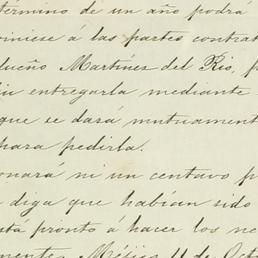 término de un año podrá
viniese á las partes contrat
dueño Martínez del Rio, p
su entregarla mediante
que se dará mutuament
para pedirla.
onará ni un centavo p
diga que habían sido
stá pronto á hacer los ne
mente, Méjico 11 de Oct